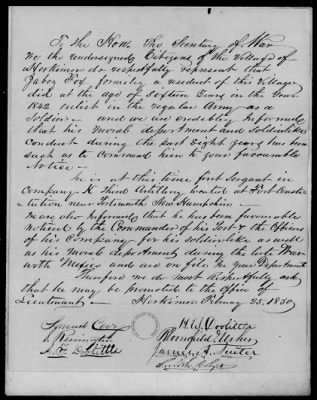 To the Hon. The Secretary of War
We the undersigned Citizens of the Village of
Herkimer do respectfully represent that
Jabez Fox formerly a resident of this Village
did at the age of sixteen years in the Year
1842 enlist in the regular Army as a
Soldier and we are credibly informed
that his moral deportment and soldierlike
conduct during the past Eight years has been
such as to commend him to your favourable
Notice.
He is at this time first Sergeant in
Company K Third Artillery located at Fort Consti-
tution near Portsmouth New Hampshire
We are also informed that he has been favourable
noticed by the Commander of his Post & the Officers
of his Company for his soldierlike as well
as his moral deportment during the late War
with Mexico and are on file in your Department
Therefore we do most respectfully ask
that he may be promoted to the Office of
Lieutenant Herkimer February 25. 1850
H. G. Doolittle
Bloomfield Usher